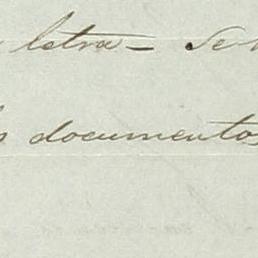 letra - Se
documentos